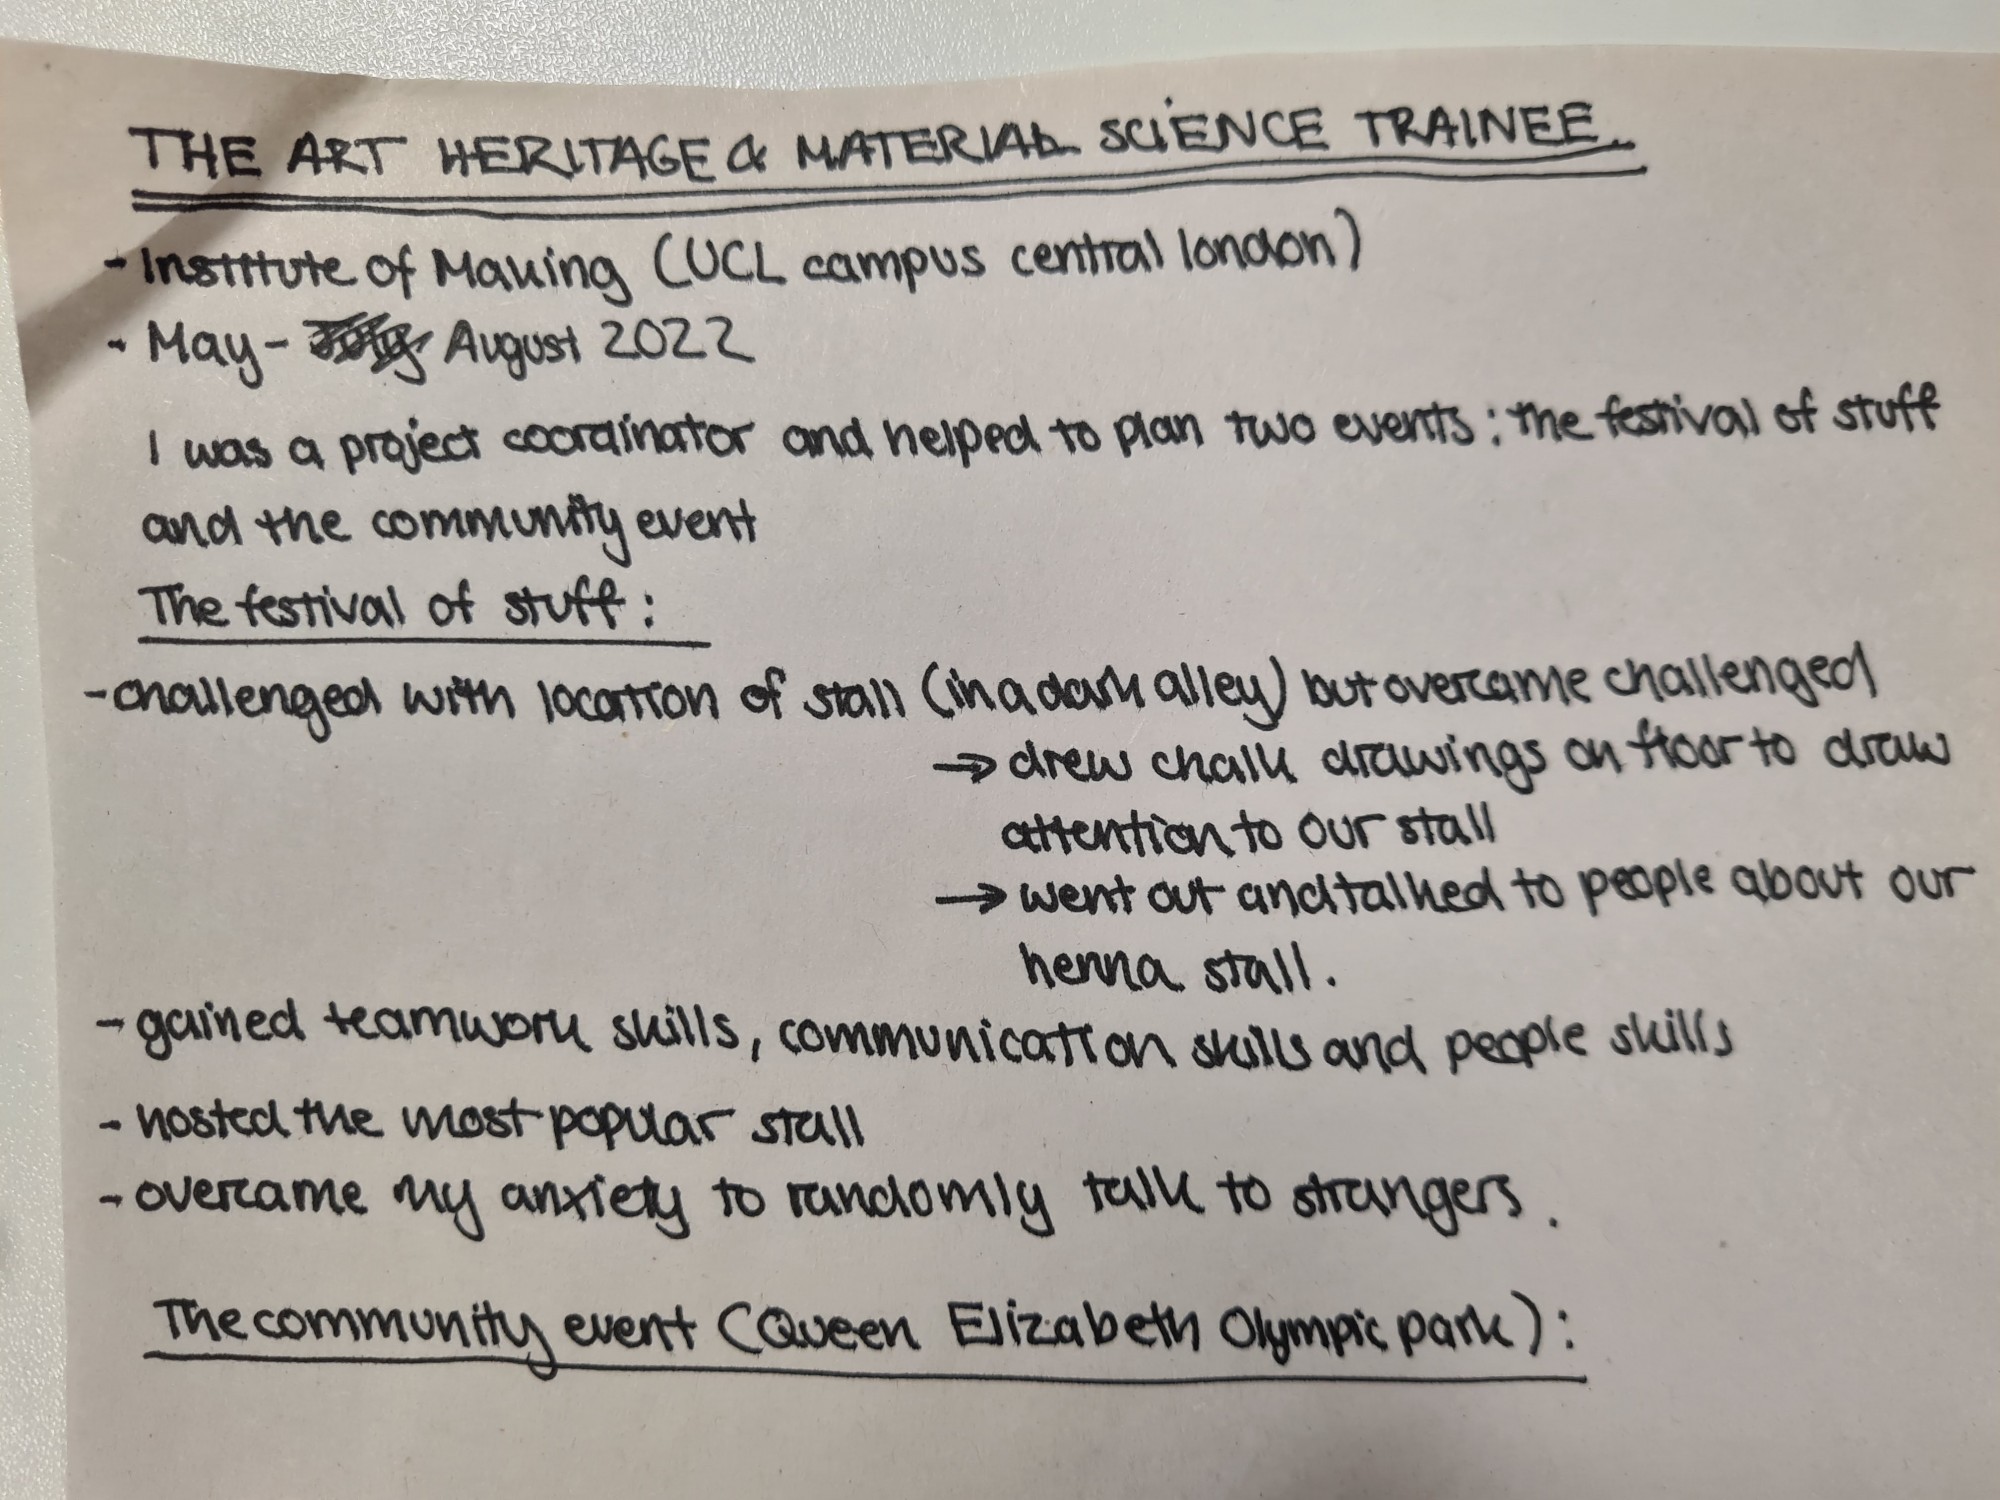 THE ART HERITAGE & MATERIAL SCIENCE TRAINEE.
- Institute of Making (UCL campus central london)
- May - August 2022
I was a project coordinator and helped to plan two events : the festival of stuff
and the community event
The festival of stuff :
- challenged with location of stall (in a dark alley) but overcame challenged
→ drew chalk drawings on floor to draw
attention to our stall
→ went out and talked to people about our
henna stall.
- gained teamwork skills, communication skills and people skills
- hosted the most popular stall
- overcame my anxiety to randomly talk to strangers.
The community event (Queen Elizabeth Olympic park) :